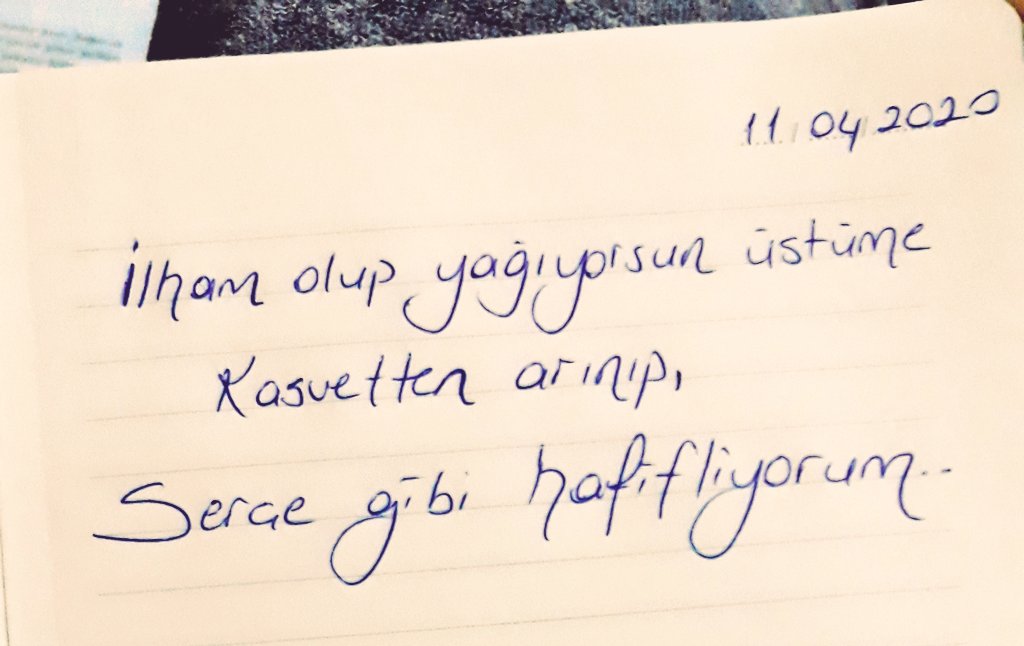 11.04.2020
İlham olup yağıyorsun üstüme
Kasvetten arınıp,
Serçe gibi hafifliyorum..